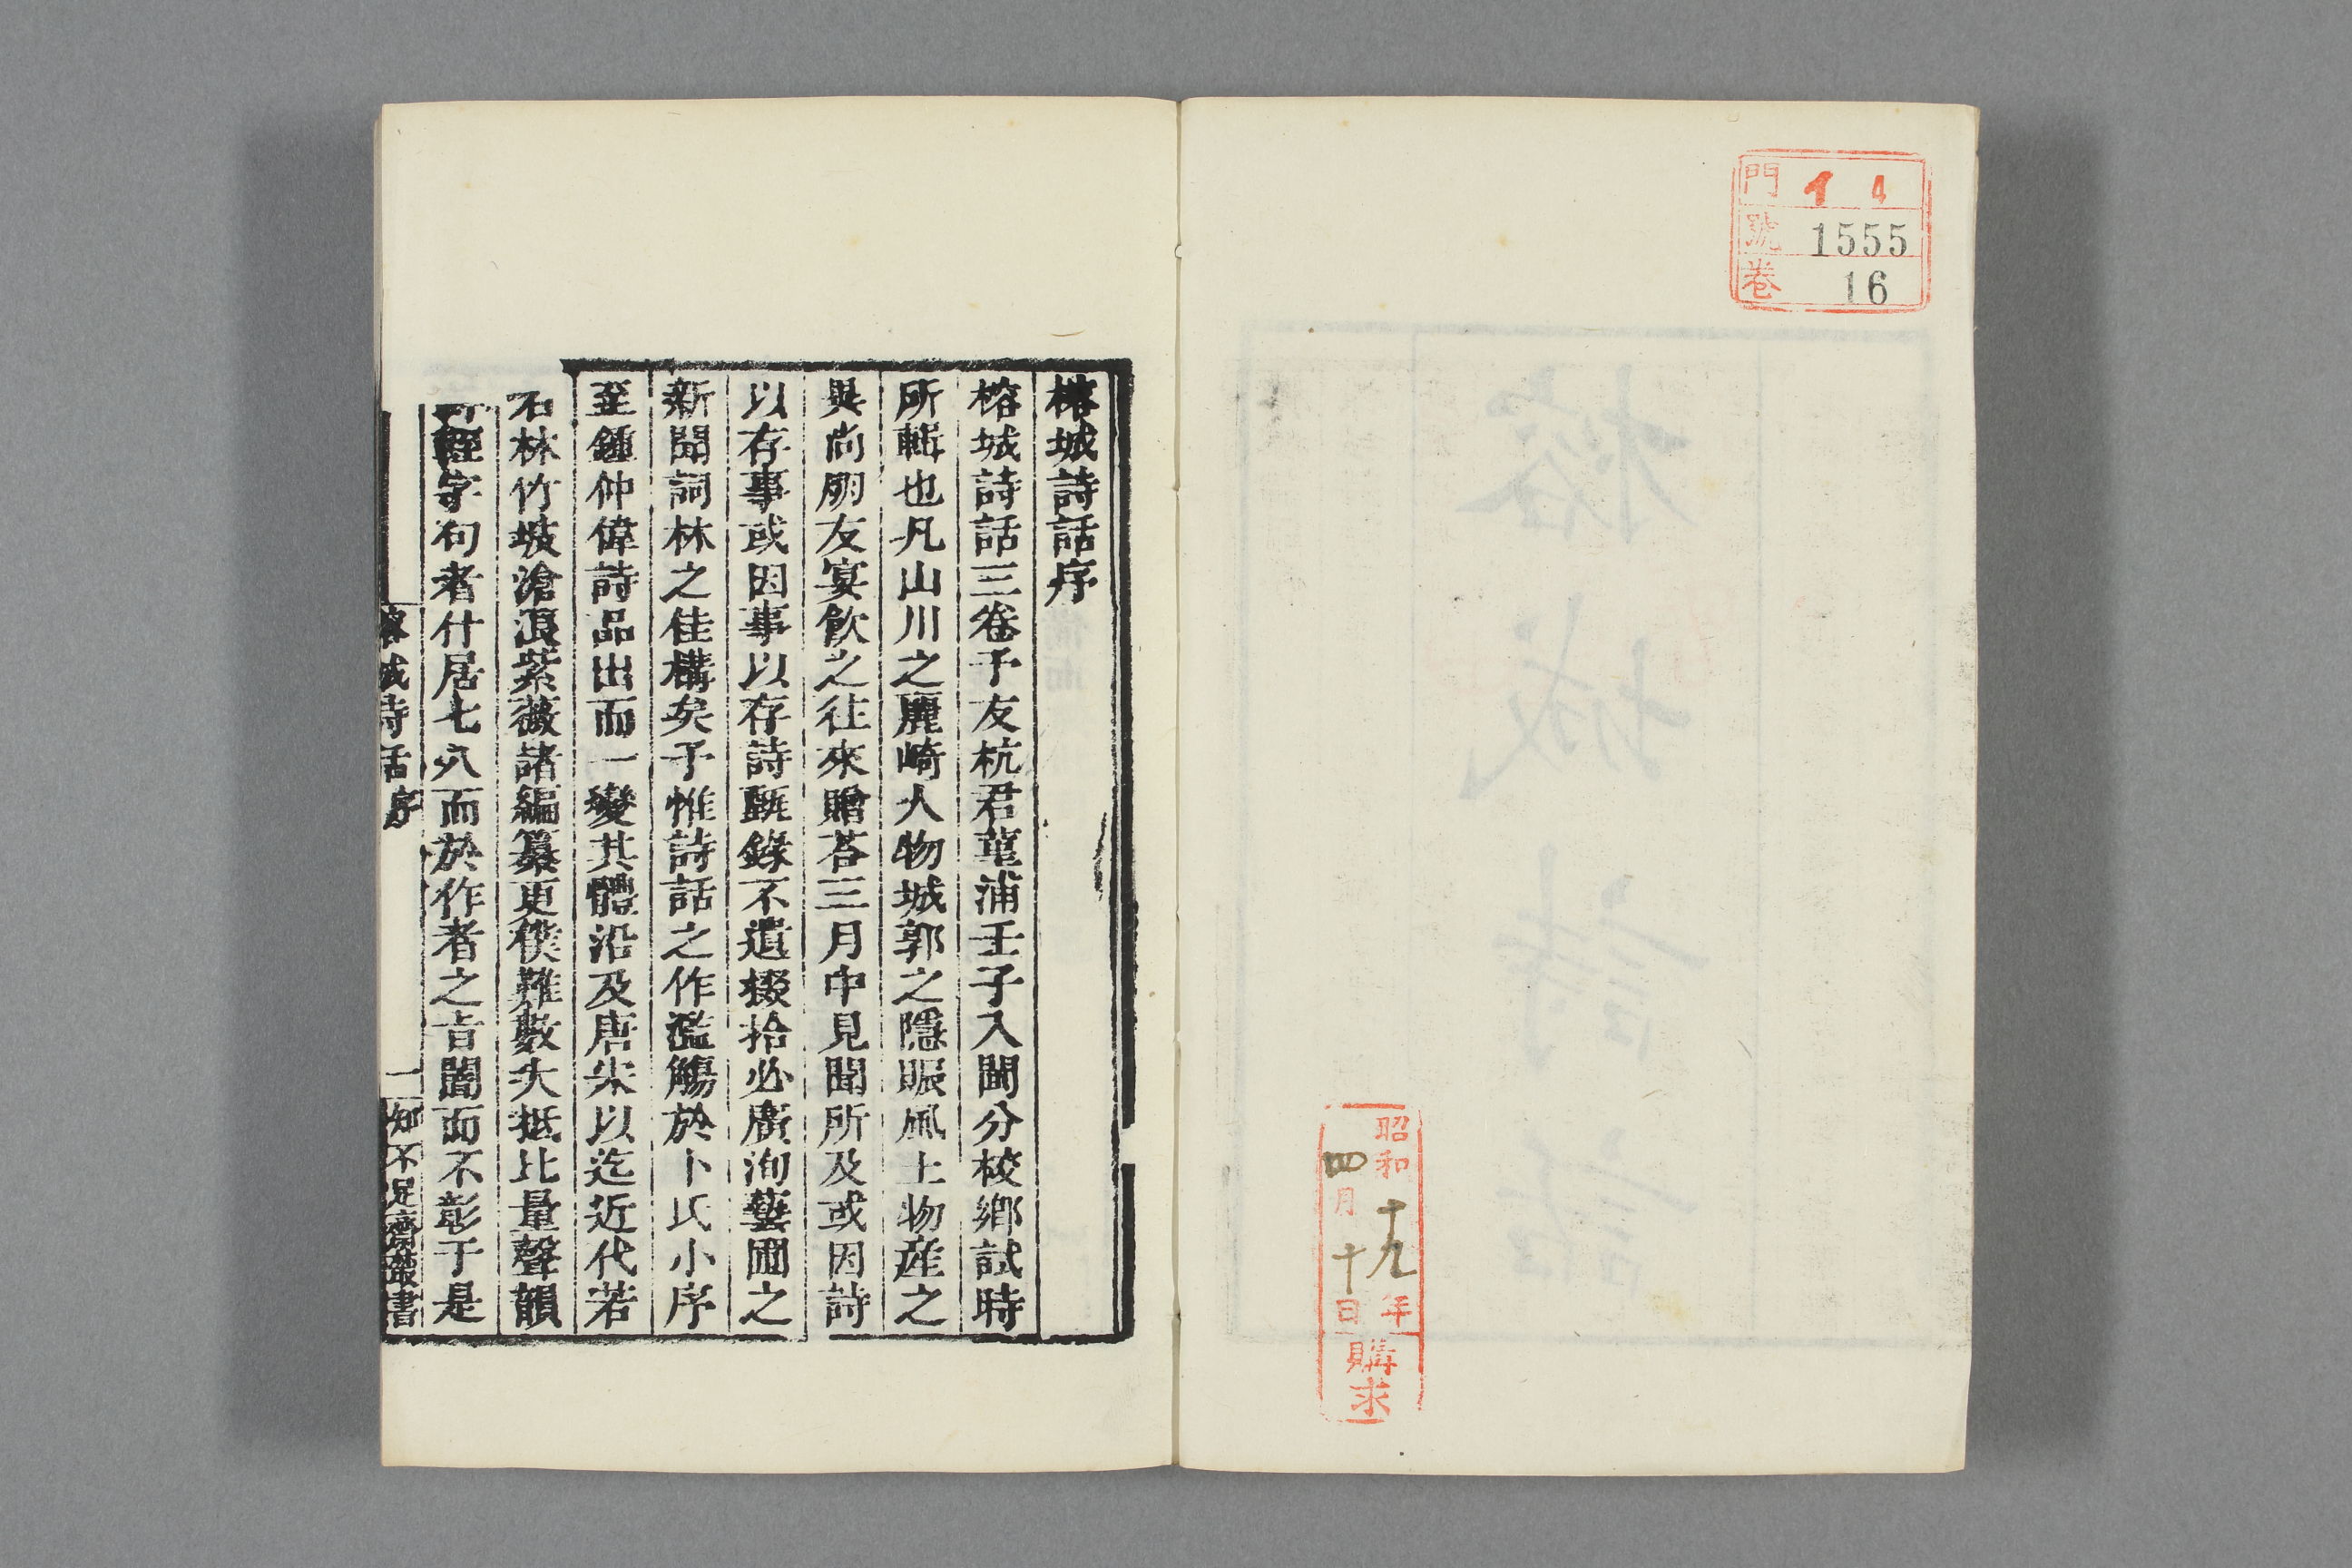 門 イ 4
號 1555
卷 16
昭和十九年
四月十日
購求
榕城詩話序
榕城詩話三卷予友杭君菫浦壬子入闈分校鄉試時
所輯也凡山川之麗崎人物城郭之隱賑風土物產之
與尚朋友宴飲之往來贈荅三月中見聞所及或因詩
以存事或因事以存詩甄錄不遺掇拾必廣洵藝圃之
新聞詞林之佳構矣予惟詩話之作濫觴於卜氏小序
至鍾仲偉詩品出而一變其體沿及唐宋以迄近代若
石林竹坡滄浪紫薇諸編纂更僕難數大抵比量聲韻
輕字句者什居七八而於作者之旨闇而不彰于是
榕城詩話序 一 知不足齋叢書